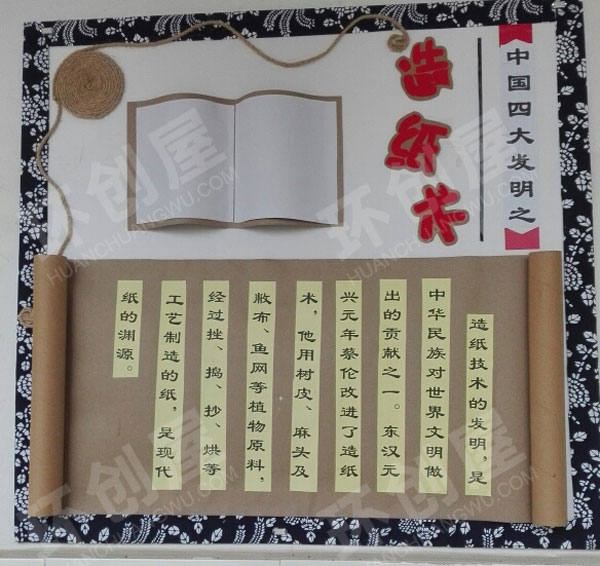 中国四大发明之
造纸术
造纸技术的发明，是
中华民族对世界文明做
出的贡献之一。东汉元
兴元年蔡伦改进了造纸
术，他用树皮、麻头及
敝布、鱼网等植物原料，
经过挫、捣、抄、烘等
工艺制造的纸，是现代
纸的渊源。
环创屋
HUANCHUANGWU.COM
环创屋
HUANCHUANGWU.COM
环创屋
HUANCHUANGWU.COM
环创屋
HUANCHUANGWU.COM